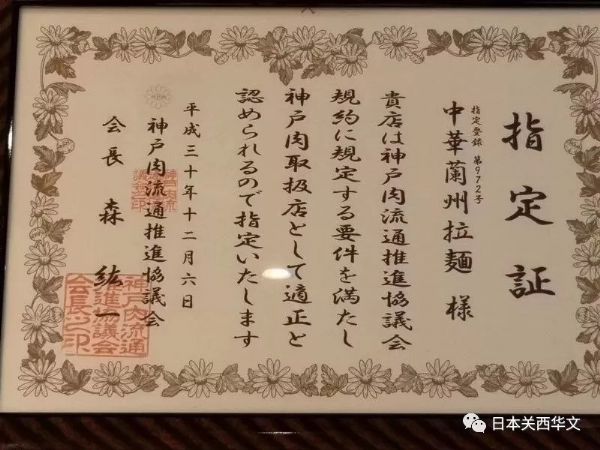 指定証
指定登録 第972号
中華蘭州拉麺 様
貴店は神戸肉流通推進協議会
規約に規定する要件を満たし
神戸肉取扱店として適正と
認められるので指定いたします
平成三十年十二月六日
神戸肉流通推進協議会
会長 森 紘一
神戸肉流通
推進協議会
会長之印
日本关西华文